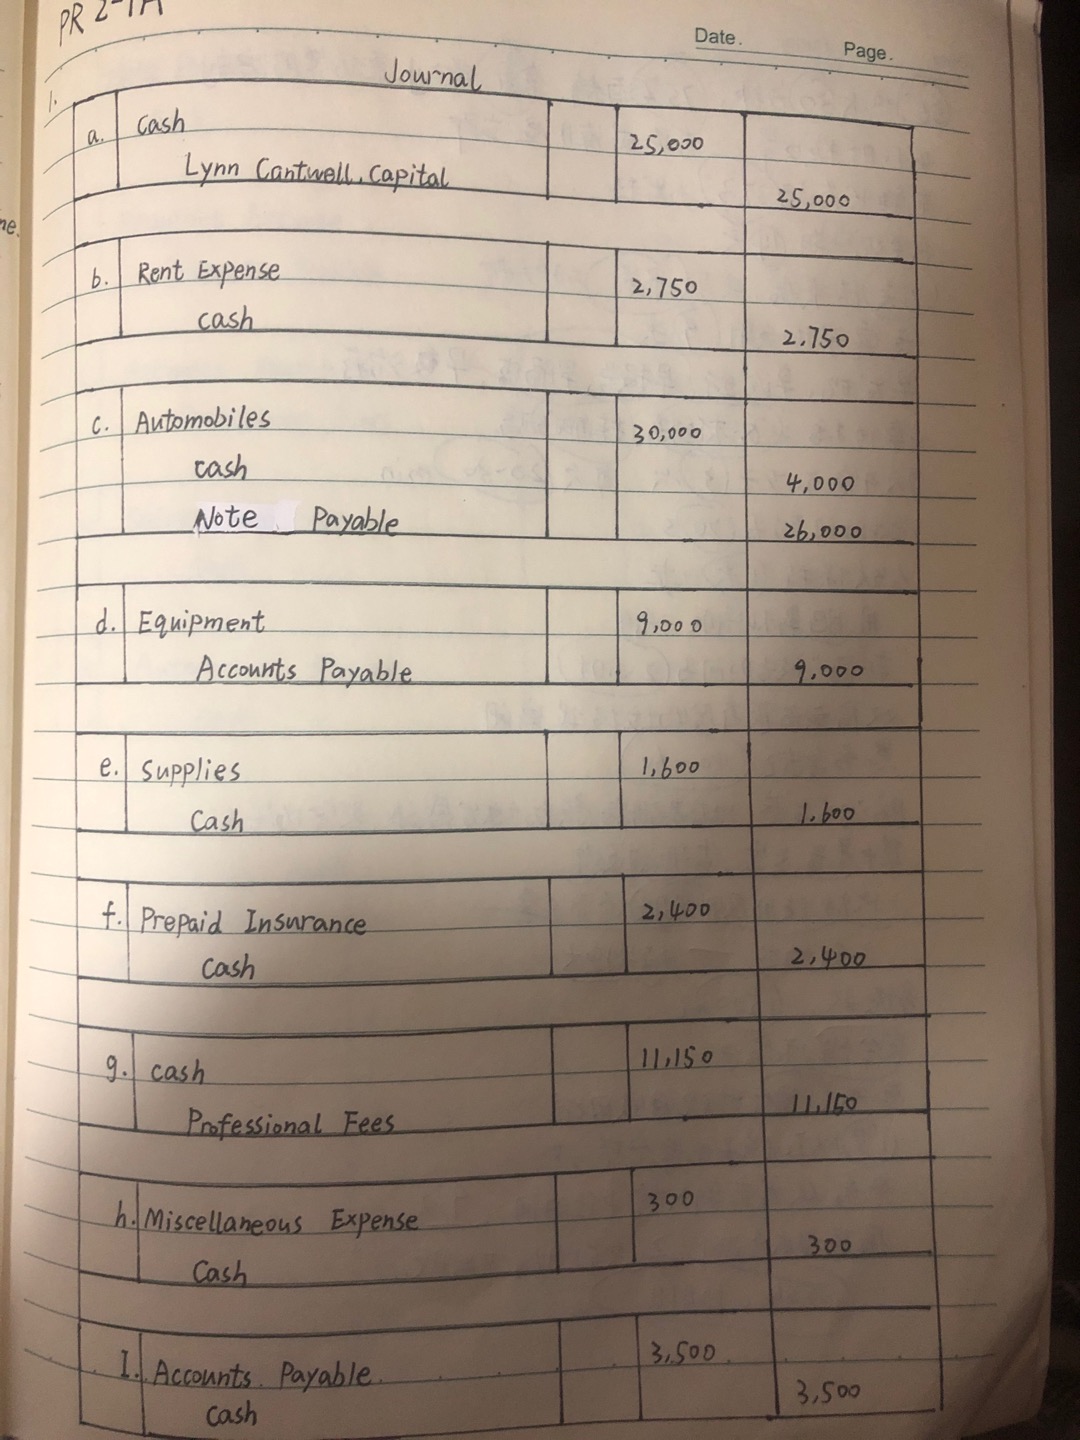 PR 2-1A
Date.
Page.
Journal
1.
a. Cash 25,000
Lynn Cantwell, Capital 25,000
b. Rent Expense 2,750
cash 2.750
c. Automobiles 30,000
cash 4,000
Note Payable 26,000
d. Equipment 9,000
Accounts Payable 9,000
e. Supplies 1,600
Cash 1.600
f. Prepaid Insurance 2,400
Cash 2,400
g. cash 11,150
Professional Fees 11,150
h. Miscellaneous Expense 300
Cash 300
I. Accounts Payable 3,500
Cash 3,500